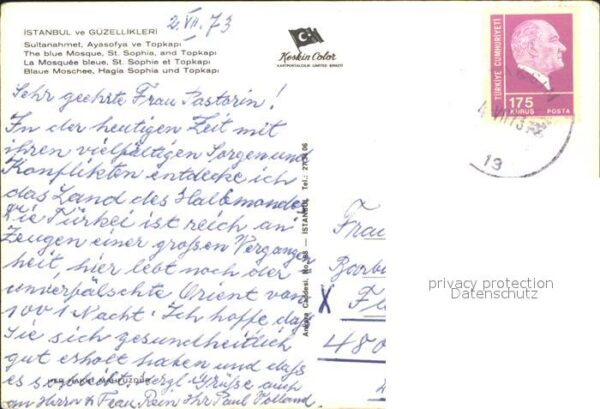 2. VII. 73
İSTANBUL ve GÜZELLİKLERİ
Sultanahmet, Ayasofya ve Topkapı
The blue Mosque, St. Sophia, and Topkapı
La Mosquée bleue, St. Sophie et Topkapı
Blaue Moschee, Hagia Sophia und Topkapı
Keskin Color
KARTPOSTALCILIK LIMITED ŞIRKETI
TÜRKİYE CUMHURİYETİ
175
KURUŞ POSTA
VII 73
13
Sehr geehrte Frau Pastorin!
In der heutigen Zeit mit
ihren vielfältigen Sorgen und
Konflikten entdecke ich
das Land des Halbmondes
Die Türkei ist reich an
Zeugen einer großen Vergangen
heit, hier lebt noch der
unverfälschte Orient von
1001 Nacht. Ich hoffe daß
Sie sich gesundheitlich
gut erholt haben und daß
es so bleibt. Herzl. Grüße auch
an Herrn u Frau Rein Ihr Paul Volland.
HER HAKKI MAHFUZDUR
Ankara Caddesi, No. 98 — İSTANBUL Tel.:
Frau
X
480
privacy protection
Datenschutz